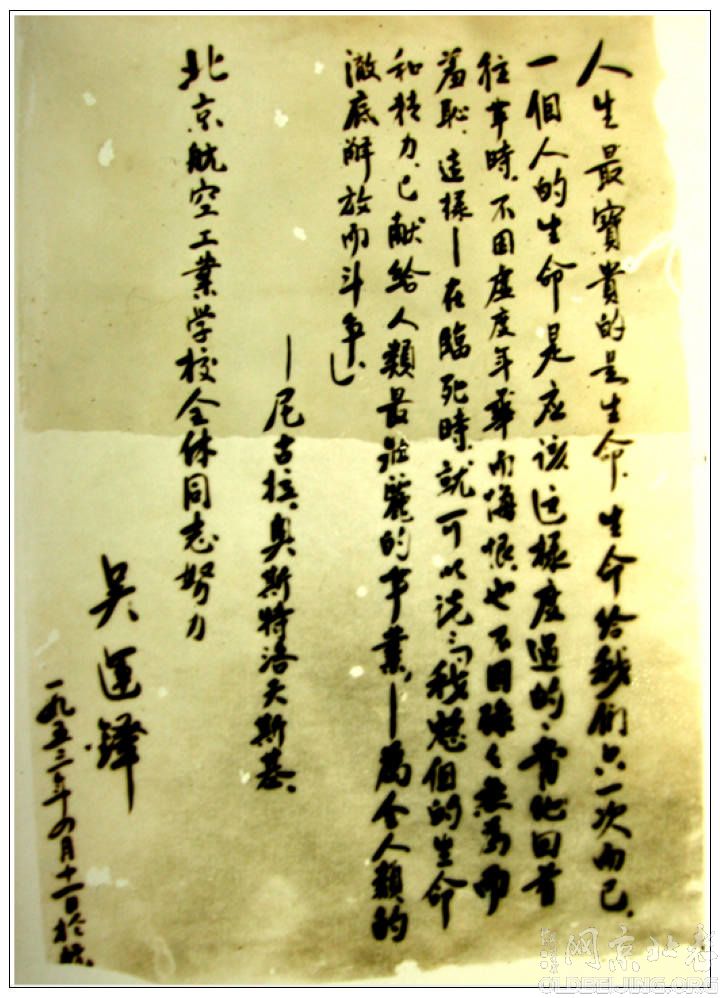 人生最寶貴的是生命，生命給我們只一次而已．
一個人的生命是应该这樣度過的、當他回首
往事時，不因虛度年華而悔恨，也不因碌々無為而
羞恥，這樣—在臨死時，就可以说：「我整個的生命
和精力，已献給人類最壯麗的事業，—為全人類的
澈底解放而斗争」
—尼古拉．奥斯特洛夫斯基．
北京航空工業学校全体同志努力
吴運鐸
一九五三年四月十一日於
網京北老
OLDBEIJING.ORG